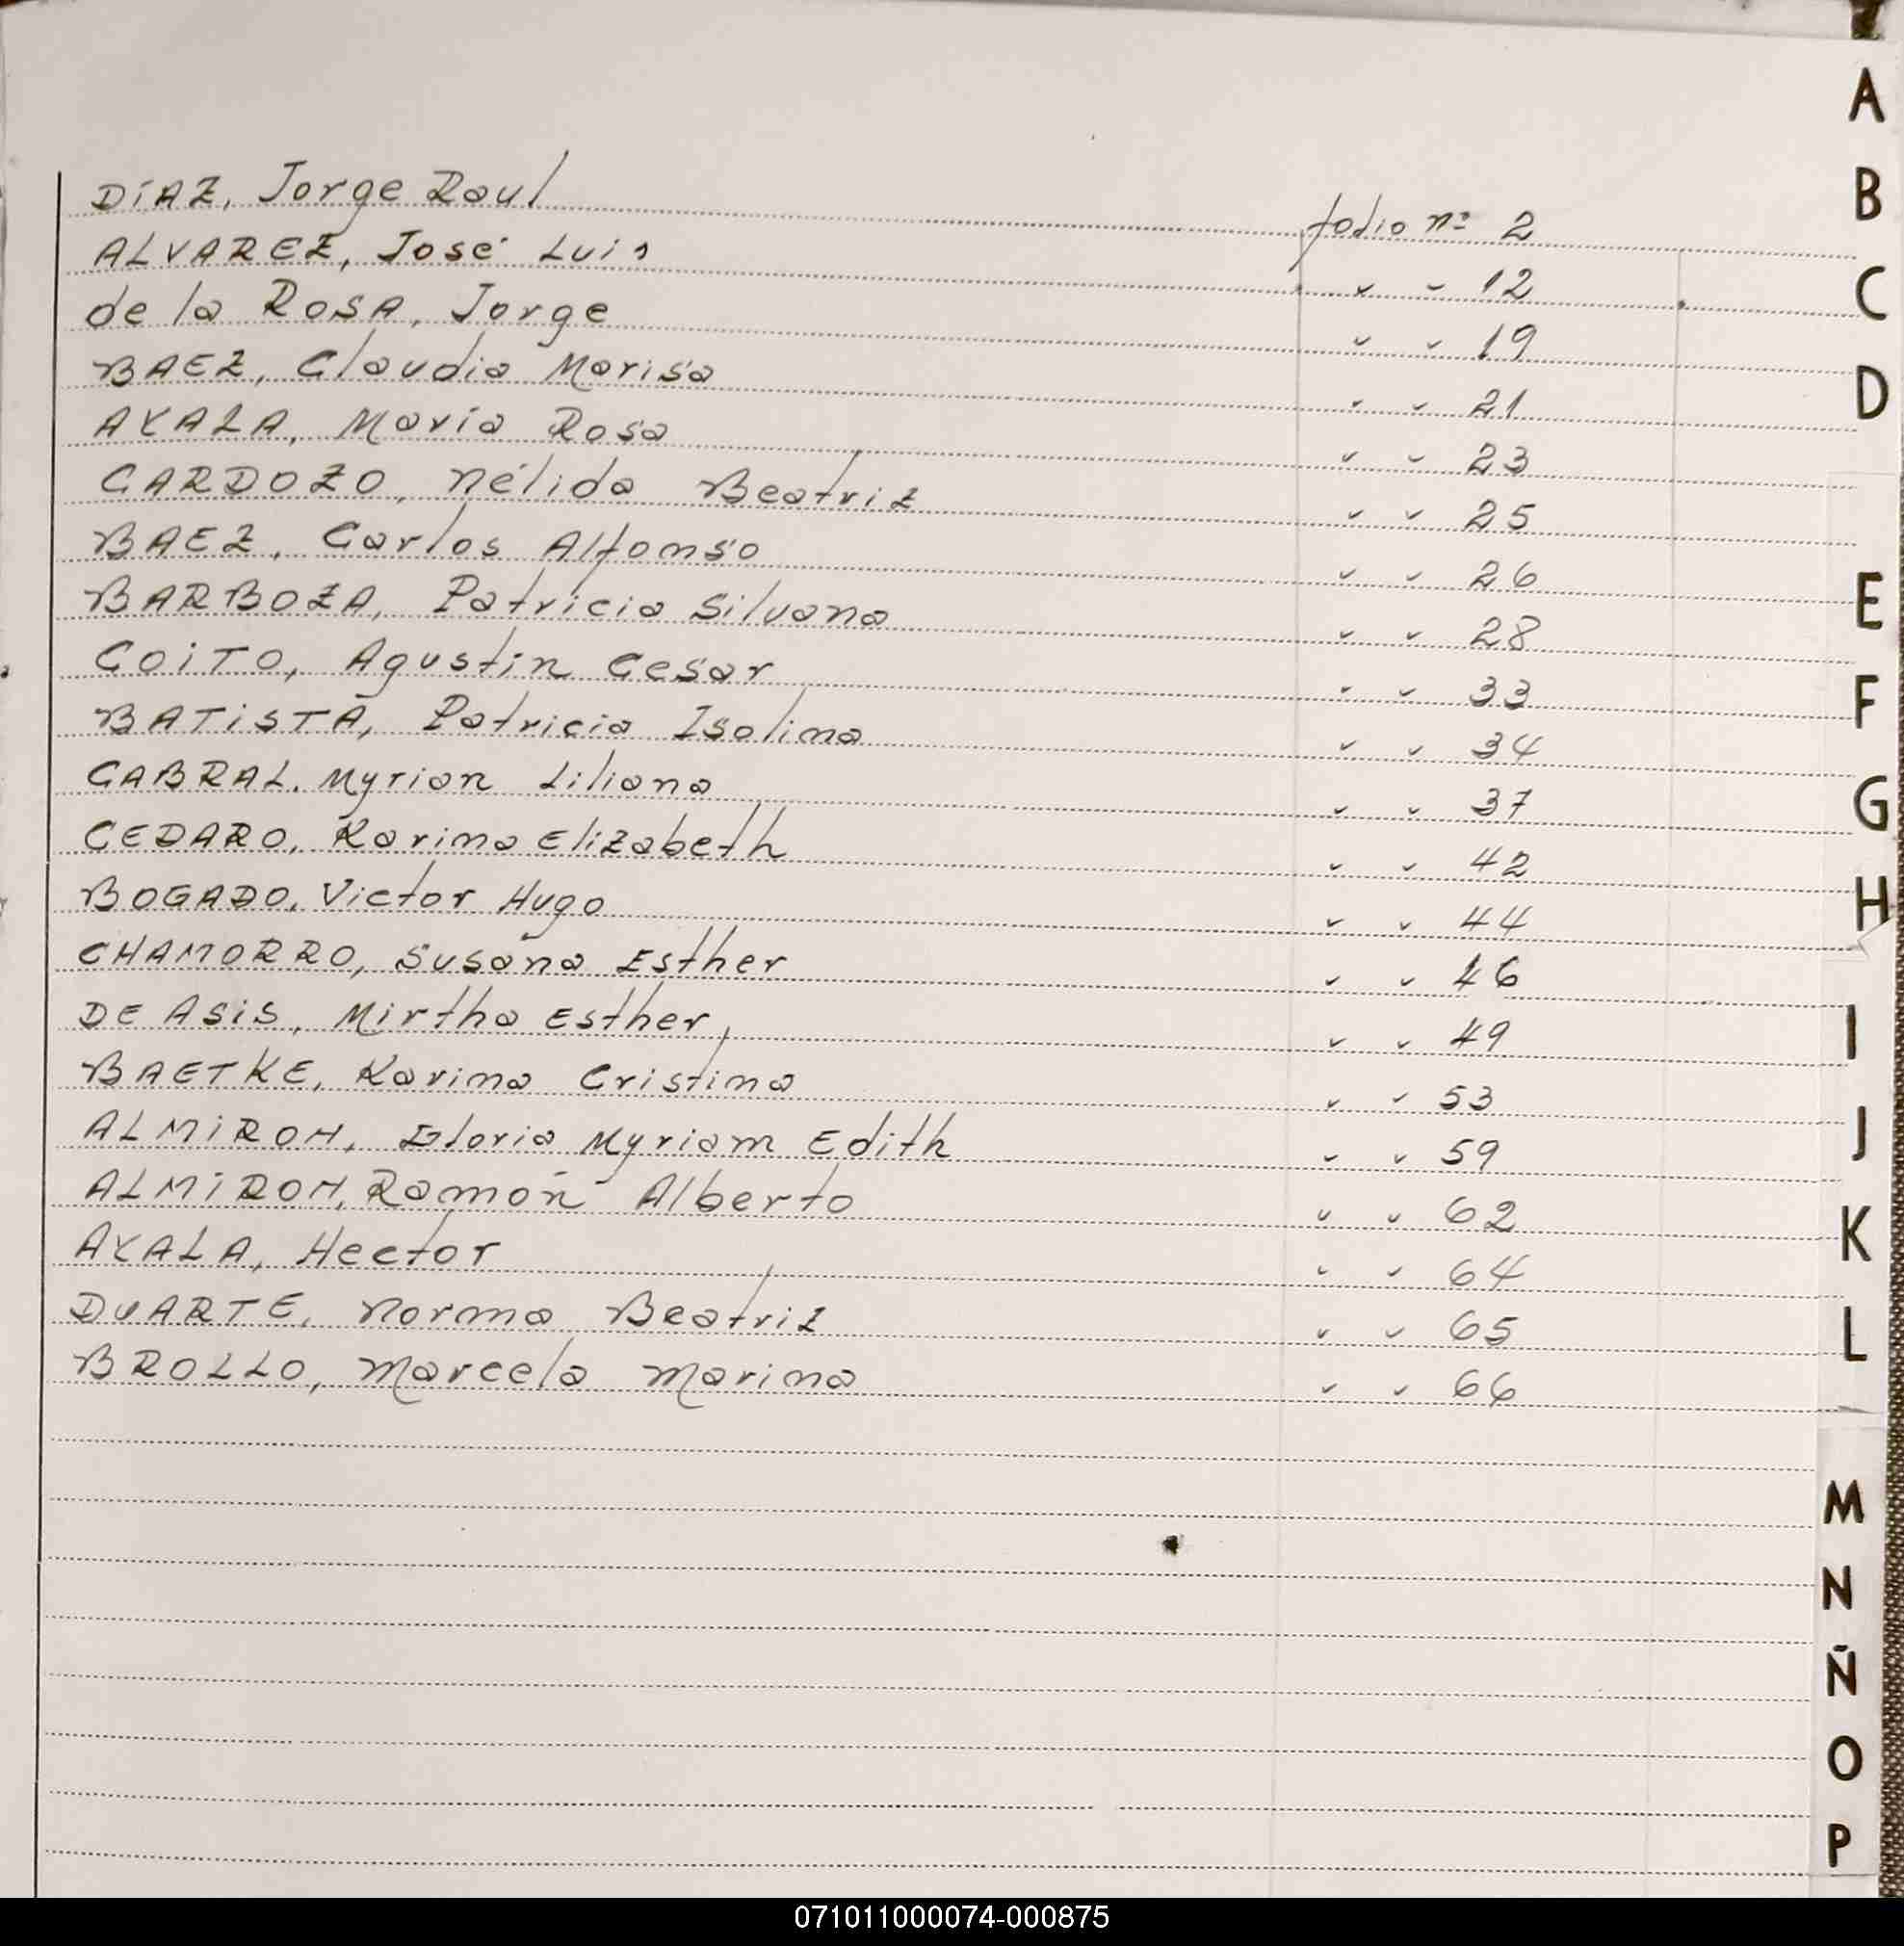 DíAZ, Jorge Raul folio nº 2
ALVAREZ, José Luis " " 12
de la ROSA, Jorge " " 19
BAEZ, Claudia Marisa " " 21
AYALA, María Rosa " " 23
CARDOZO, Nélida Beatriz " " 25
BAEZ, Carlos Alfonso " " 26
BARBOZA, Patricia Silvana " " 28
COiTO, Agustín Cesar " " 33
BATiSTA, Patricia Isolina " " 34
CABRAL, Myrian Liliana " " 37
CEDARO, Karina Elizabeth " " 42
BOGADO, Victor Hugo " " 44
CHAMORRO, Susana Esther " " 46
DE ASiS, Mirtha Esther, " " 49
BAETKE, Karina Cristina " " 53
ALMiRON, Gloria Myriam Edith " " 59
ALMiRON, Ramón Alberto " " 62
AYALA, Hector " " 64
DUARTE, Norma Beatriz " " 65
BROLLO, Marcela Marina " " 66
A
B
C
D
E
F
G
H
I
J
K
L
M
N
Ñ
O
P
071011000074-000875